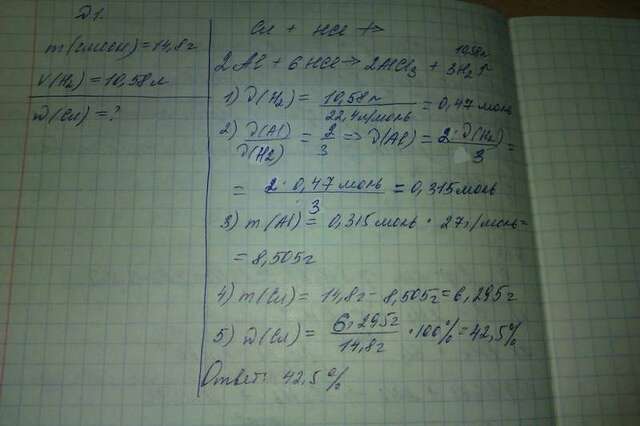 Д1.
m(смеси) = 14,8г
V(H₂) = 10,58л
ω(Cu) = ?
Cu + HCl ↛
10,58л
2Al + 6HCl → 2AlCl₃ + 3H₂↑
1) ν(H₂) = 10,58л / 22,4л/моль = 0,47 моль
2) ν(Al) / ν(H₂) = 2/3 => ν(Al) = 2·ν(H₂) / 3 =
= 2·0,47 моль / 3 = 0,315 моль
3) m(Al) = 0,315 моль · 27г/моль =
= 8,505г
4) m(Cu) = 14,8г - 8,505г = 6,295г
5) ω(Cu) = 6,295г / 14,8г · 100% = 42,5%
Ответ: 42,5%